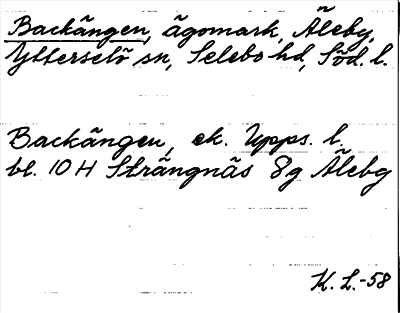 Backängen, ägomark, Åleby,
Ytterselö sn, Selebo hd, Söd. l.
Backängen, ek. Upps. l.
bl. 10 H Strängnäs 8g Åleby
K. L.-58